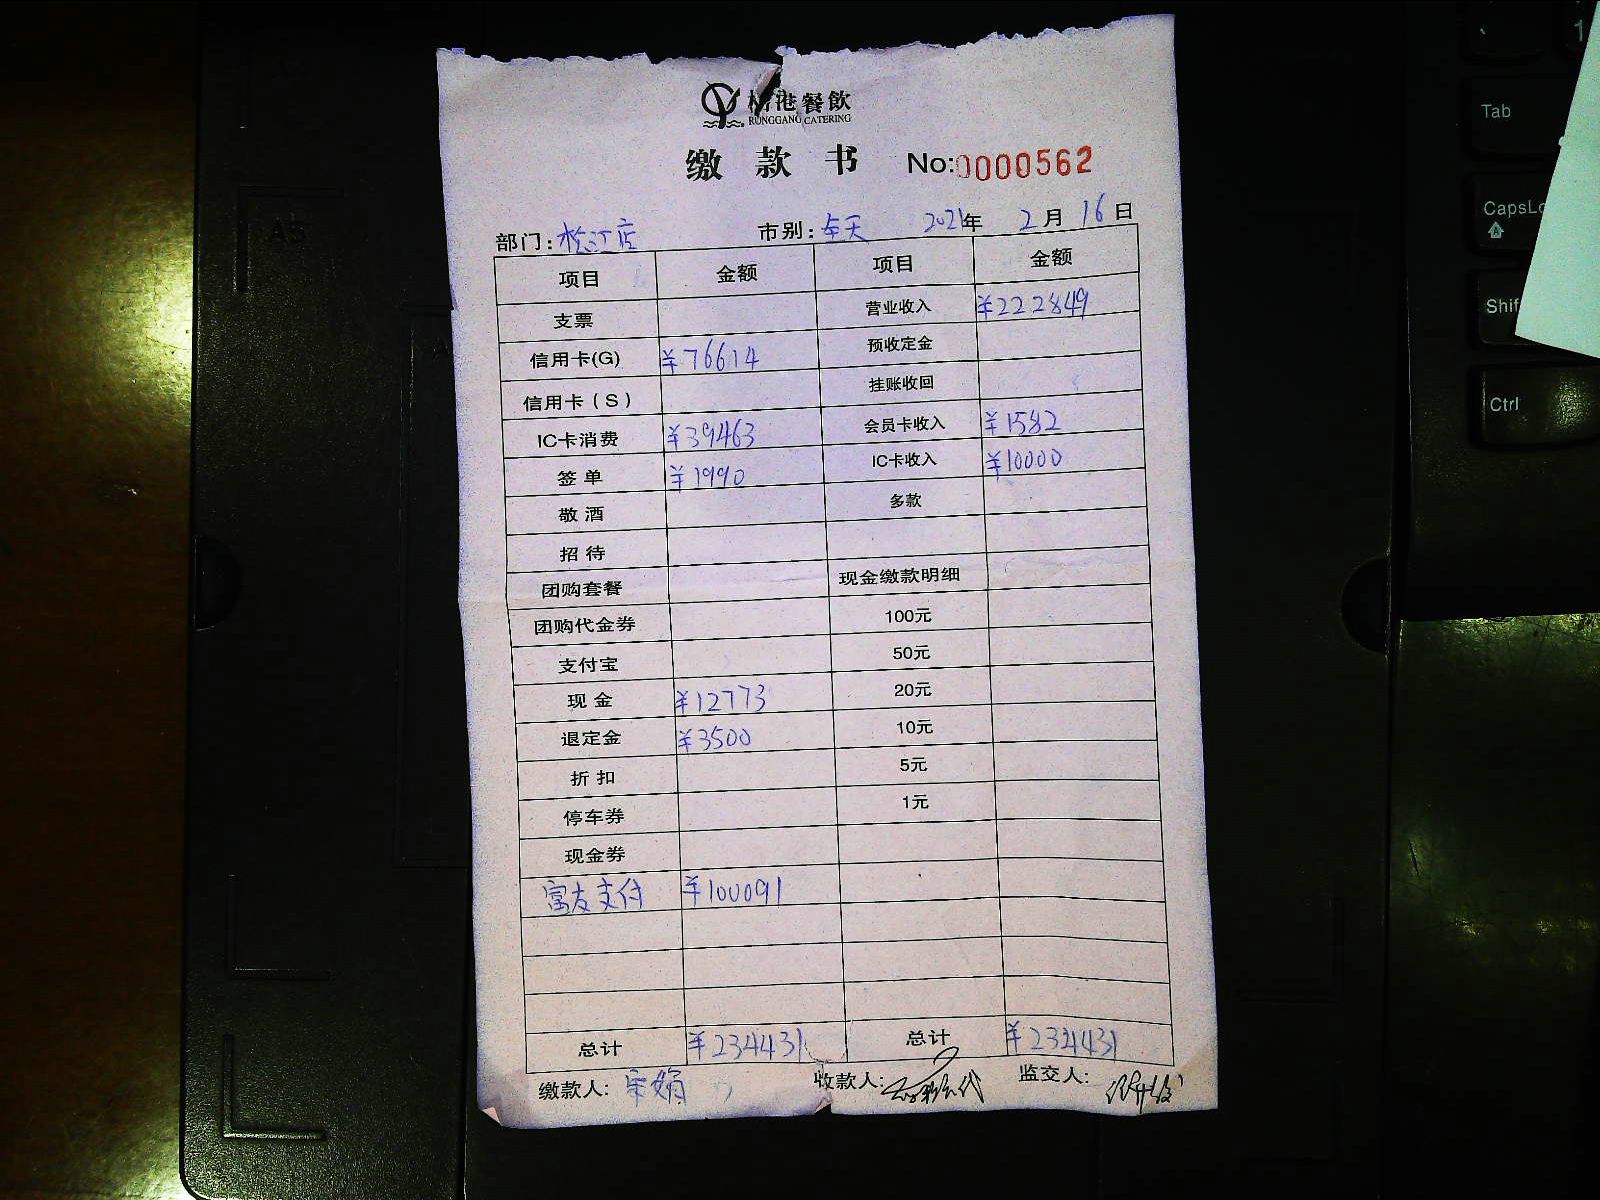 港餐飲
RONGGANG CATERING
缴款书 No:0000562
部门:松江店 市别:本天 2021年 2月 16日
项目 金额 项目 金额
支票 营业收入 ¥222849
信用卡(G) ¥76614 预收定金
信用卡(S) 挂账收回
IC卡消费 ¥39463 会员卡收入 ¥1582
签单 ¥1990 IC卡收入 ¥10000
敬酒 多款
招待
团购套餐 现金缴款明细
团购代金券 100元
支付宝 50元
现金 ¥12773 20元
退定金 ¥3500 10元
折扣 5元
停车券 1元
现金券
富友支付 ¥100091
总计 ¥234431 总计 ¥234431
缴款人: 收款人: 监交人:
A5
Tab
CapsLo
Shif
Ctrl